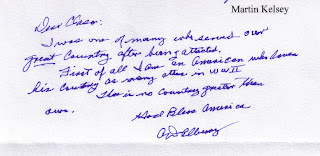 Martin Kelsey
Dear Chase:
I was one of many who served our
great Country after being attacked.
First of all I am an American who loves
his Country as many others in WW II
There is no Country greater than
ours.
God Bless America